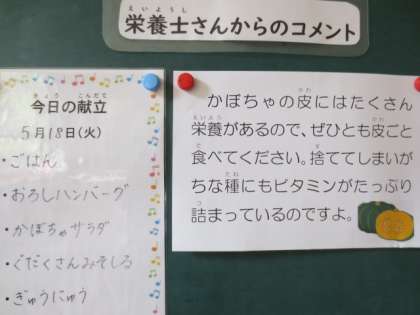 栄養士さんからのコメント
今日の献立
5月18日(火)
・ごはん
・おろしハンバーグ
・かぼちゃサラダ
・ぐだくさんみそしる
・ぎゅうにゅう
かぼちゃの皮にはたくさん
栄養があるので、ぜひとも皮ごと
食べてください。捨ててしまいが
ちな種にもビタミンがたっぷり
詰まっているのですよ。